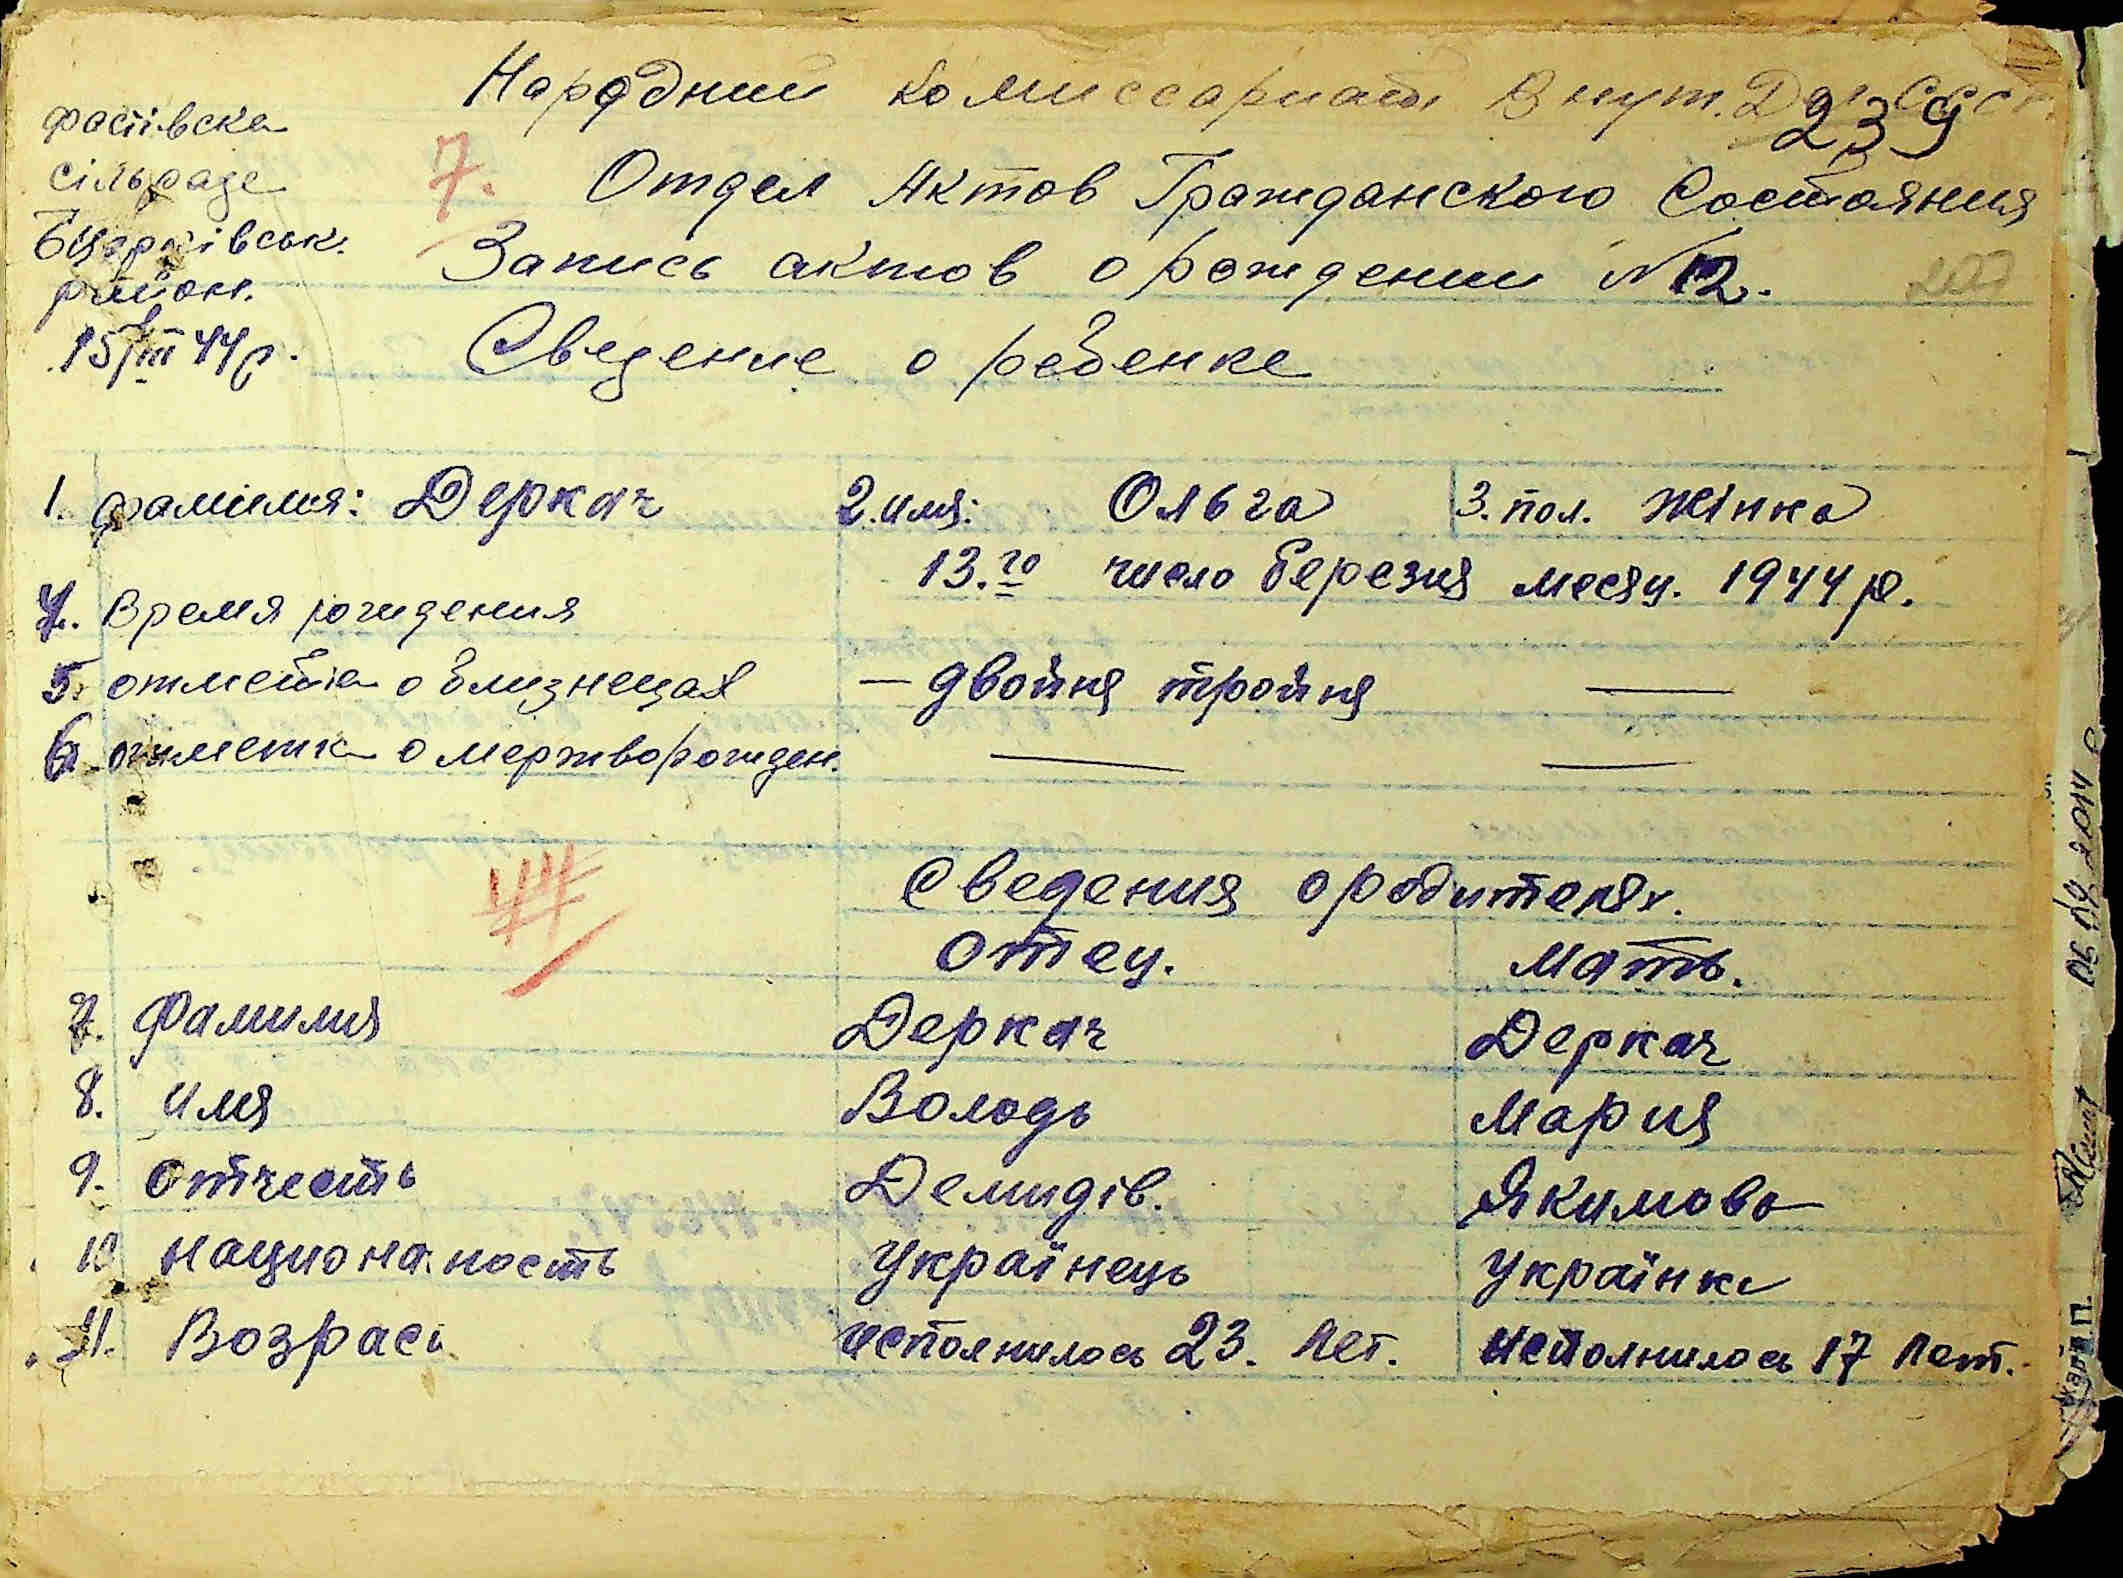 Народний Комиссариат Внут. Дел СССР.
239
фастівска
сільраде
Бцерківськ.
район.
15/III 44 р.
7. Отдел Актов Гражданского Состояния
Запись актов о рождении № 12.
207
Сведение о ребенке
1. фамилия: Деркач 2. имя: Ольга 3. пол. Жінка
4. Время рождения 13.го число березня месяц. 1944 р.
5. отметка о близнецах — двойня тройня —
6. отметка о мертворожден. — —
44
Сведения о родителях.
отец. мать.
7. Фамилия Деркач Деркач
8. имя Володь Мария
9. отчесть Демидів. Якимова
10 национа.ность Українець Українка
11. Возрасı исполнилось 23. лет. исполнилось 17 лет.